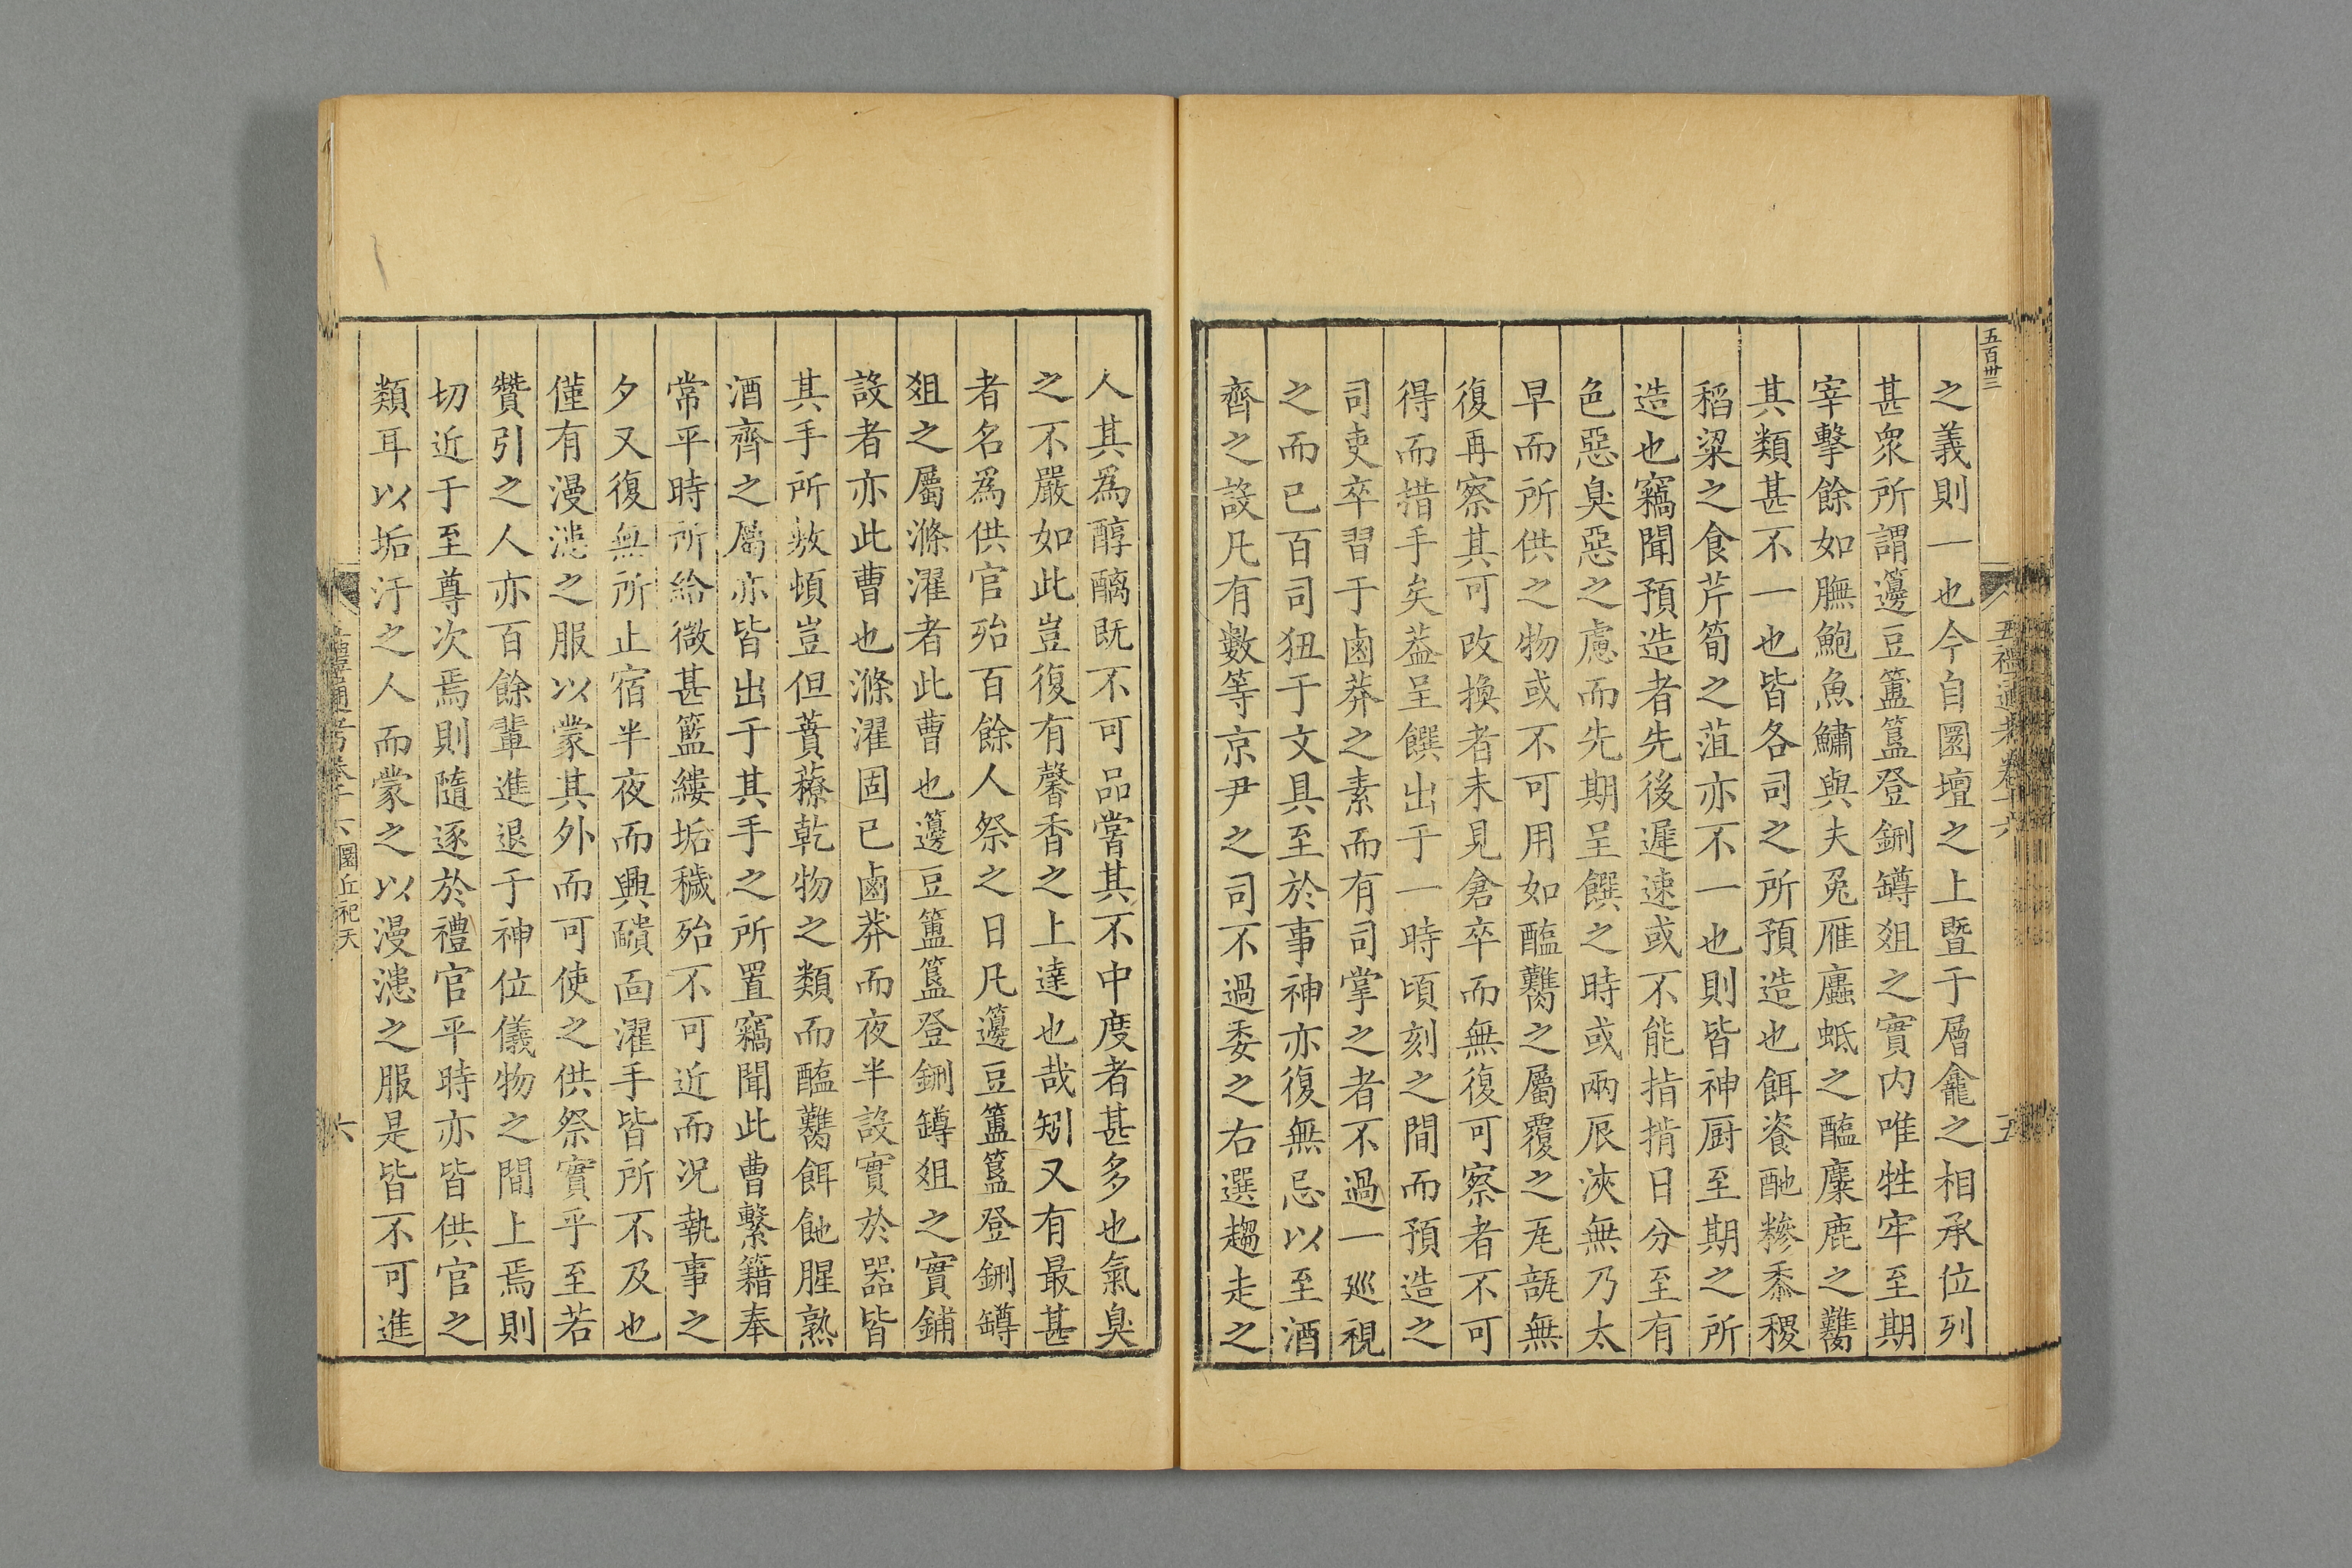 五百卅三
五禮通考卷十六
五
之義則一也今自圜壇之上暨于層龕之相承位列
甚衆所謂籩豆簠簋登鉶罇爼之實内唯牲牢至期
宰擊餘如膴鮑魚鱐與夫兔雁蠯蚳之醢麋鹿之臡
其類甚不一也皆各司之所預造也餌餈酏糝黍稷
稻粱之食芹筍之菹亦不一也則皆神厨至期之所
造也竊聞預造者先後遲速或不能指揹日分至有
色惡臭惡之慮而先期呈饌之時或兩辰浹無乃太
早而所供之物或不可用如醢臡之屬覆之瓦瓿無
復再察其可改換者未見倉卒而無復可察者不可
得而措手矣葢呈饌出于一時頃刻之間而預造之
司吏卒習于鹵莽之素而有司掌之者不過一廵視
之而已百司狃于文具至於事神亦復無忌以至酒
齊之設凡有數等京尹之司不過委之右選趨走之
人其爲醇醨既不可品嘗其不中度者甚多也氣臭
之不嚴如此豈復有馨香之上達也哉矧又有最甚
者名爲供官殆百餘人祭之日凡籩豆簠簋登鉶罇
爼之屬滌濯者此曹也籩豆簠簋登鉶罇爼之實鋪
設者亦此曹也滌濯固已鹵莽而夜半設實於器皆
其手所敉頓豈但蕡䕩乾物之類而醢臡餌飿腥熟
酒齊之屬亦皆出于其手之所置竊聞此曹繫籍奉
常平時所給微甚籃縷垢穢殆不可近而況執事之
夕又復無所止宿半夜而興靧面濯手皆所不及也
僅有漫漶之服以蒙其外而可使之供祭實乎至若
贊引之人亦百餘輩進退于神位儀物之間上焉則
切近于至尊次焉則隨逐於禮官平時亦皆供官之
類耳以垢汙之人而蒙之以漫漶之服是皆不可進
五禮通考卷十六 圜丘祀天
六